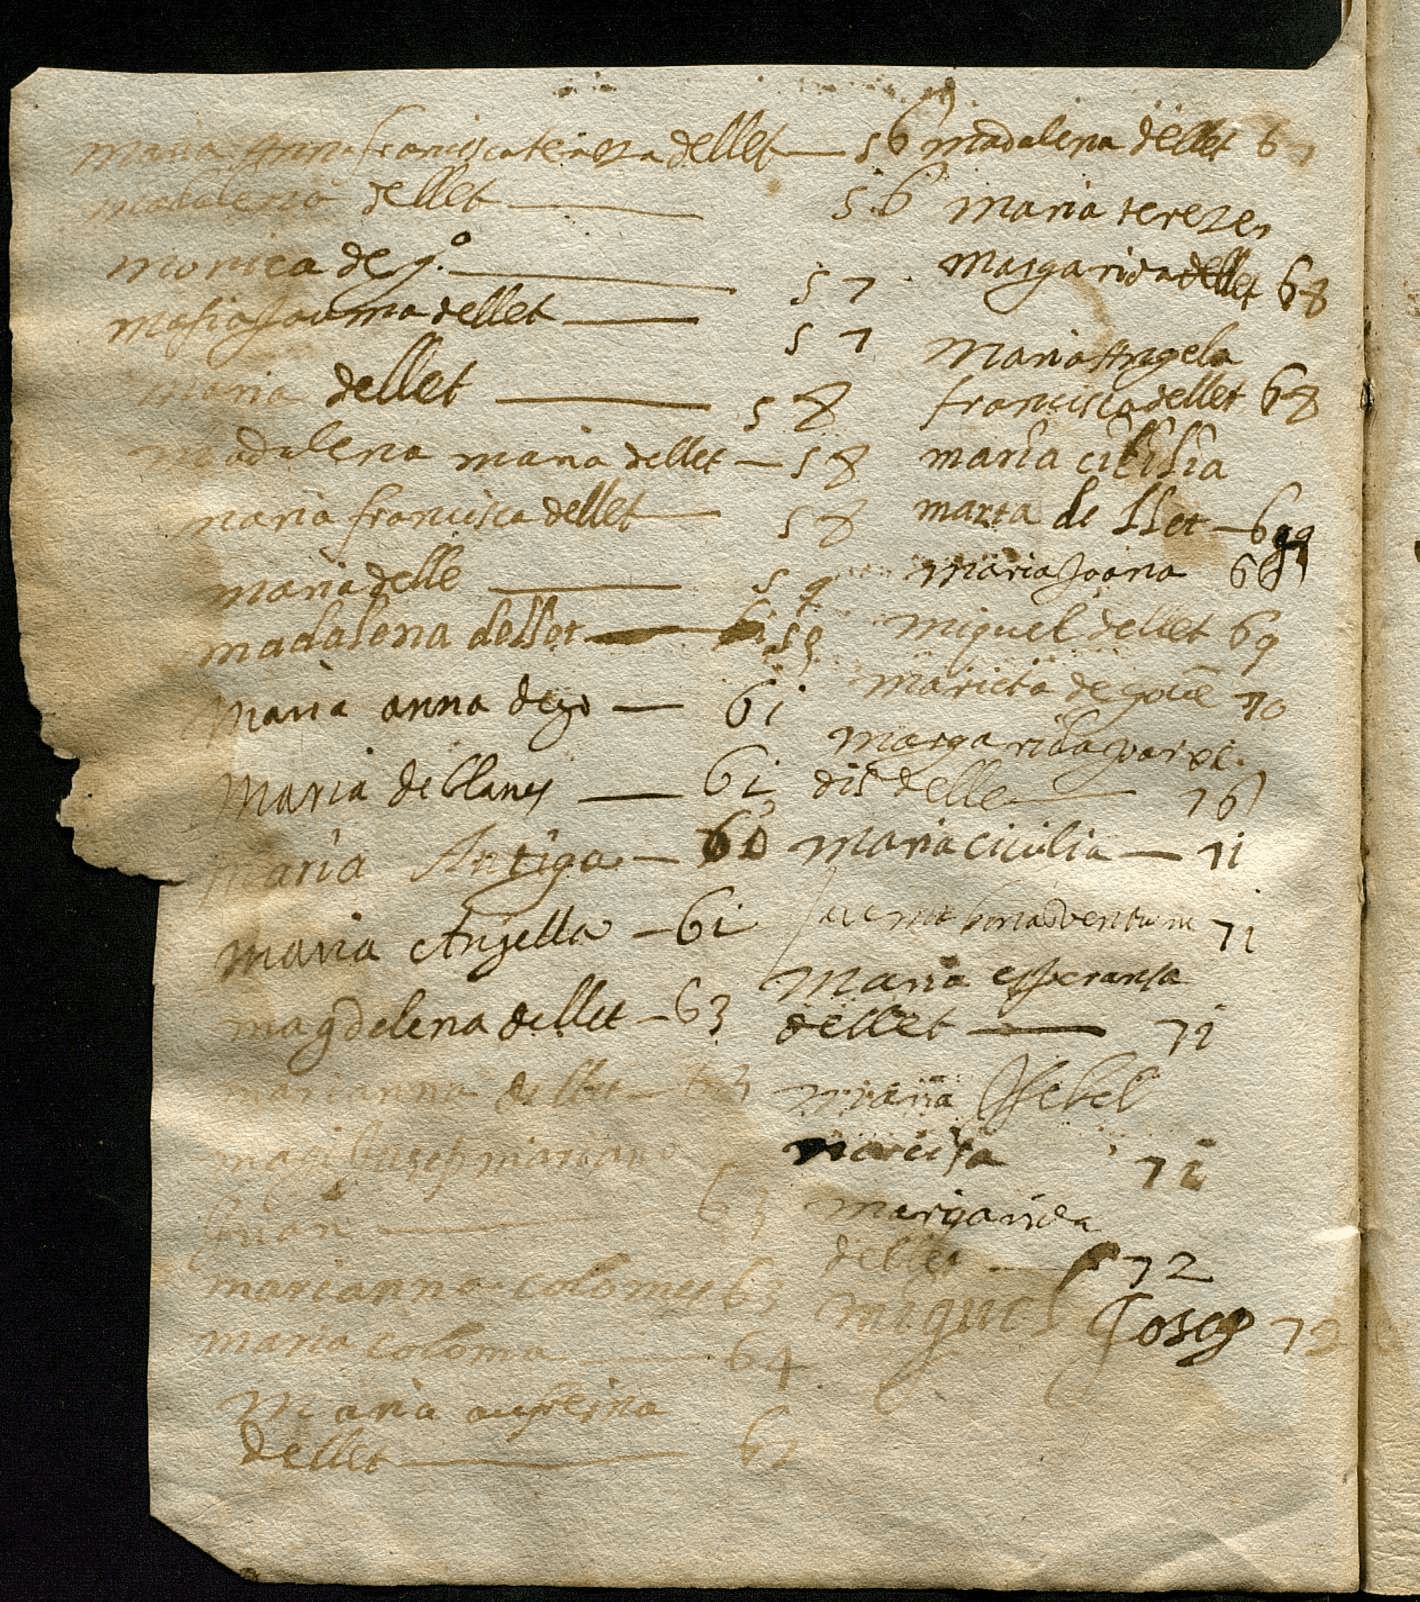 maria Anna francisca tereza dellet — 56
madalena dellet — 56
monica de g.o — 57
maria Jauma dellet — 57
maria dellet — 58
madalena maria dellet — 58
maria francisca dellet — 58
maria delle — 59
madalena dellet — 59
Maria anna dego — 61
Maria de blanes — 61
maria Antiga — 61
maria Angella — 61
magdelena dellet — 63
marianna dellet — 63
Jusep mariano
Juan — 63
marianna colomer 63
maria coloma — 64
Maria
dellet — 67
madalena dellet 67
maria tereza
margarida dellet 68
Maria Angela
francisca dellet 68
maria cicilia
marta de llet — 69
maria Joana 69
miquel dellet 69
marieta de
70
margarida
delle — 76
maria cicilia — 71
bonaventura 71
Maria esperansa
dellet — 71
maria Isebel
narcisa 71
margarida
dellet — 72
miguel Josep 72